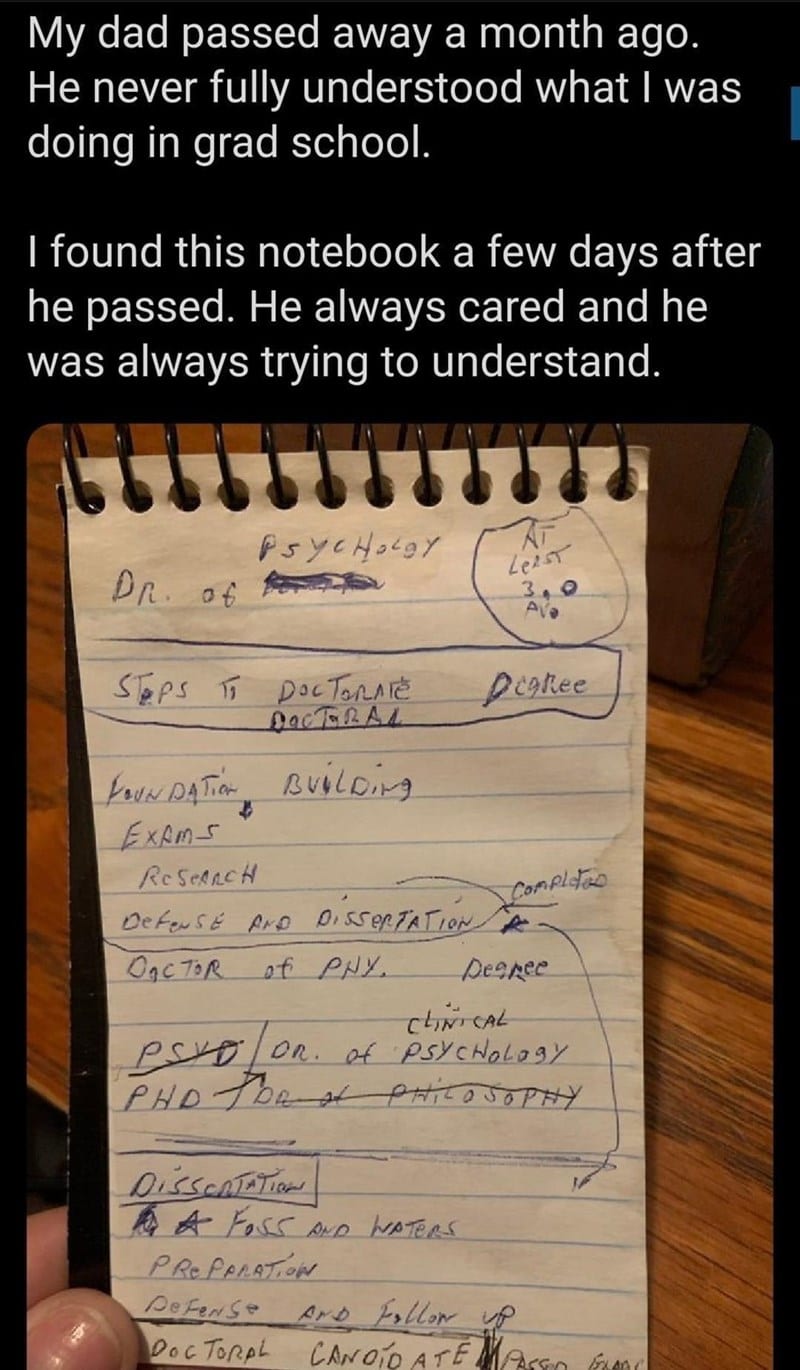 My dad passed away a month ago.
He never fully understood what I was
doing in grad school.
I found this notebook a few days after
he passed. He always cared and he
was always trying to understand.
PSYCHOLOGY
DR. of
AT
LEAST
3.0
AV.
STEPS TO DOCTORATE DEGREE
DOCTORAL
FOUNDATION BUILDING
EXAMS
RESEARCH
COMPLETED
DEFENSE AND DISSERTATION
DOCTOR of PHY. DEGREE
CLINICAL
PSYD / DR. of PSYCHOLOGY
PHD / DR of PHILOSOPHY
DISSERTATION
FOSS AND WATERS
PREPARATION
DEFENSE AND FOLLOW UP
DOCTORAL CANDIDATE PASSED EXAMS